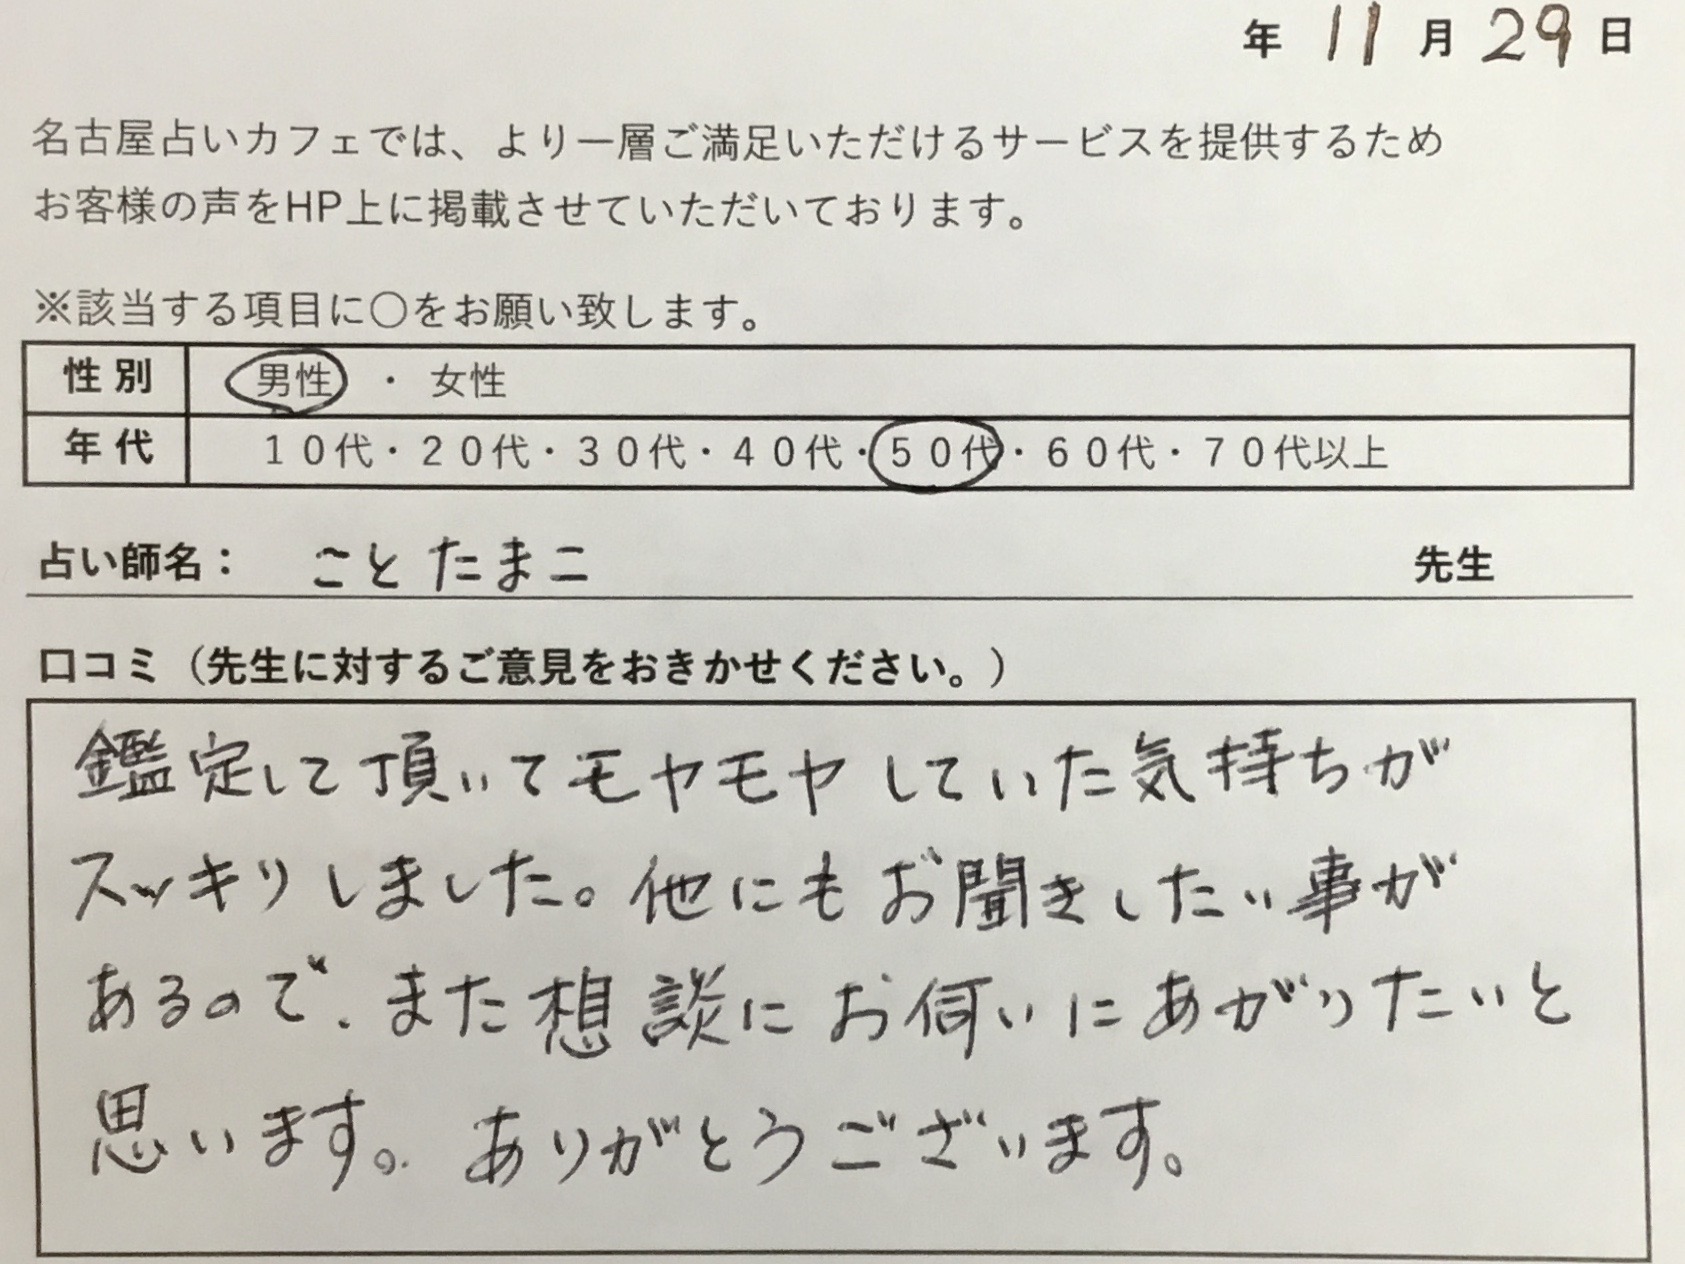 年 11 月 29 日
名古屋占いカフェでは、より一層ご満足いただけるサービスを提供するため
お客様の声をHP上に掲載させていただいております。
※該当する項目に○をお願い致します。
性別 男性 ・ 女性
年代 10代・20代・30代・40代・50代・60代・70代以上
占い師名： ことたまこ 先生
口コミ（先生に対するご意見をおきかせください。）
鑑定して頂いてモヤモヤしていた気持ちが
スッキリしました。他にもお聞きしたい事が
あるので、また想談にお伺いにあがりたいと
思います。ありがとうございます。